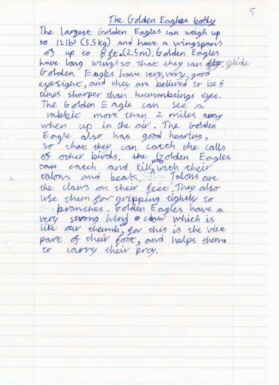 5
The Golden Eagles body
The largest Golden Eagles can weigh up
to 12lbf (5.5kg) and have a wingspans
of up to 8 ft (2.5m). Golden Eagles
have long wings so that they can glide.
Golden Eagles have very, very, good
eyesight, and they are believed to be 8
times sharper than humanbeings eyes.
The Golden Eagle can see a
rabbit more than 2 miles away
when up in the air. The Golden
Eagle also has good hearing,
so that they can catch the calls
of other birds, the Golden Eagles
can catch and kill with their
talons and beak. Talons are
the claws on their feet. They also
use them for gripping tightly to
branches. Golden Eagles have a
very strong hind claw which is
like our thumb, for this is the vice
part of their foot, and helps them
to carry their prey.